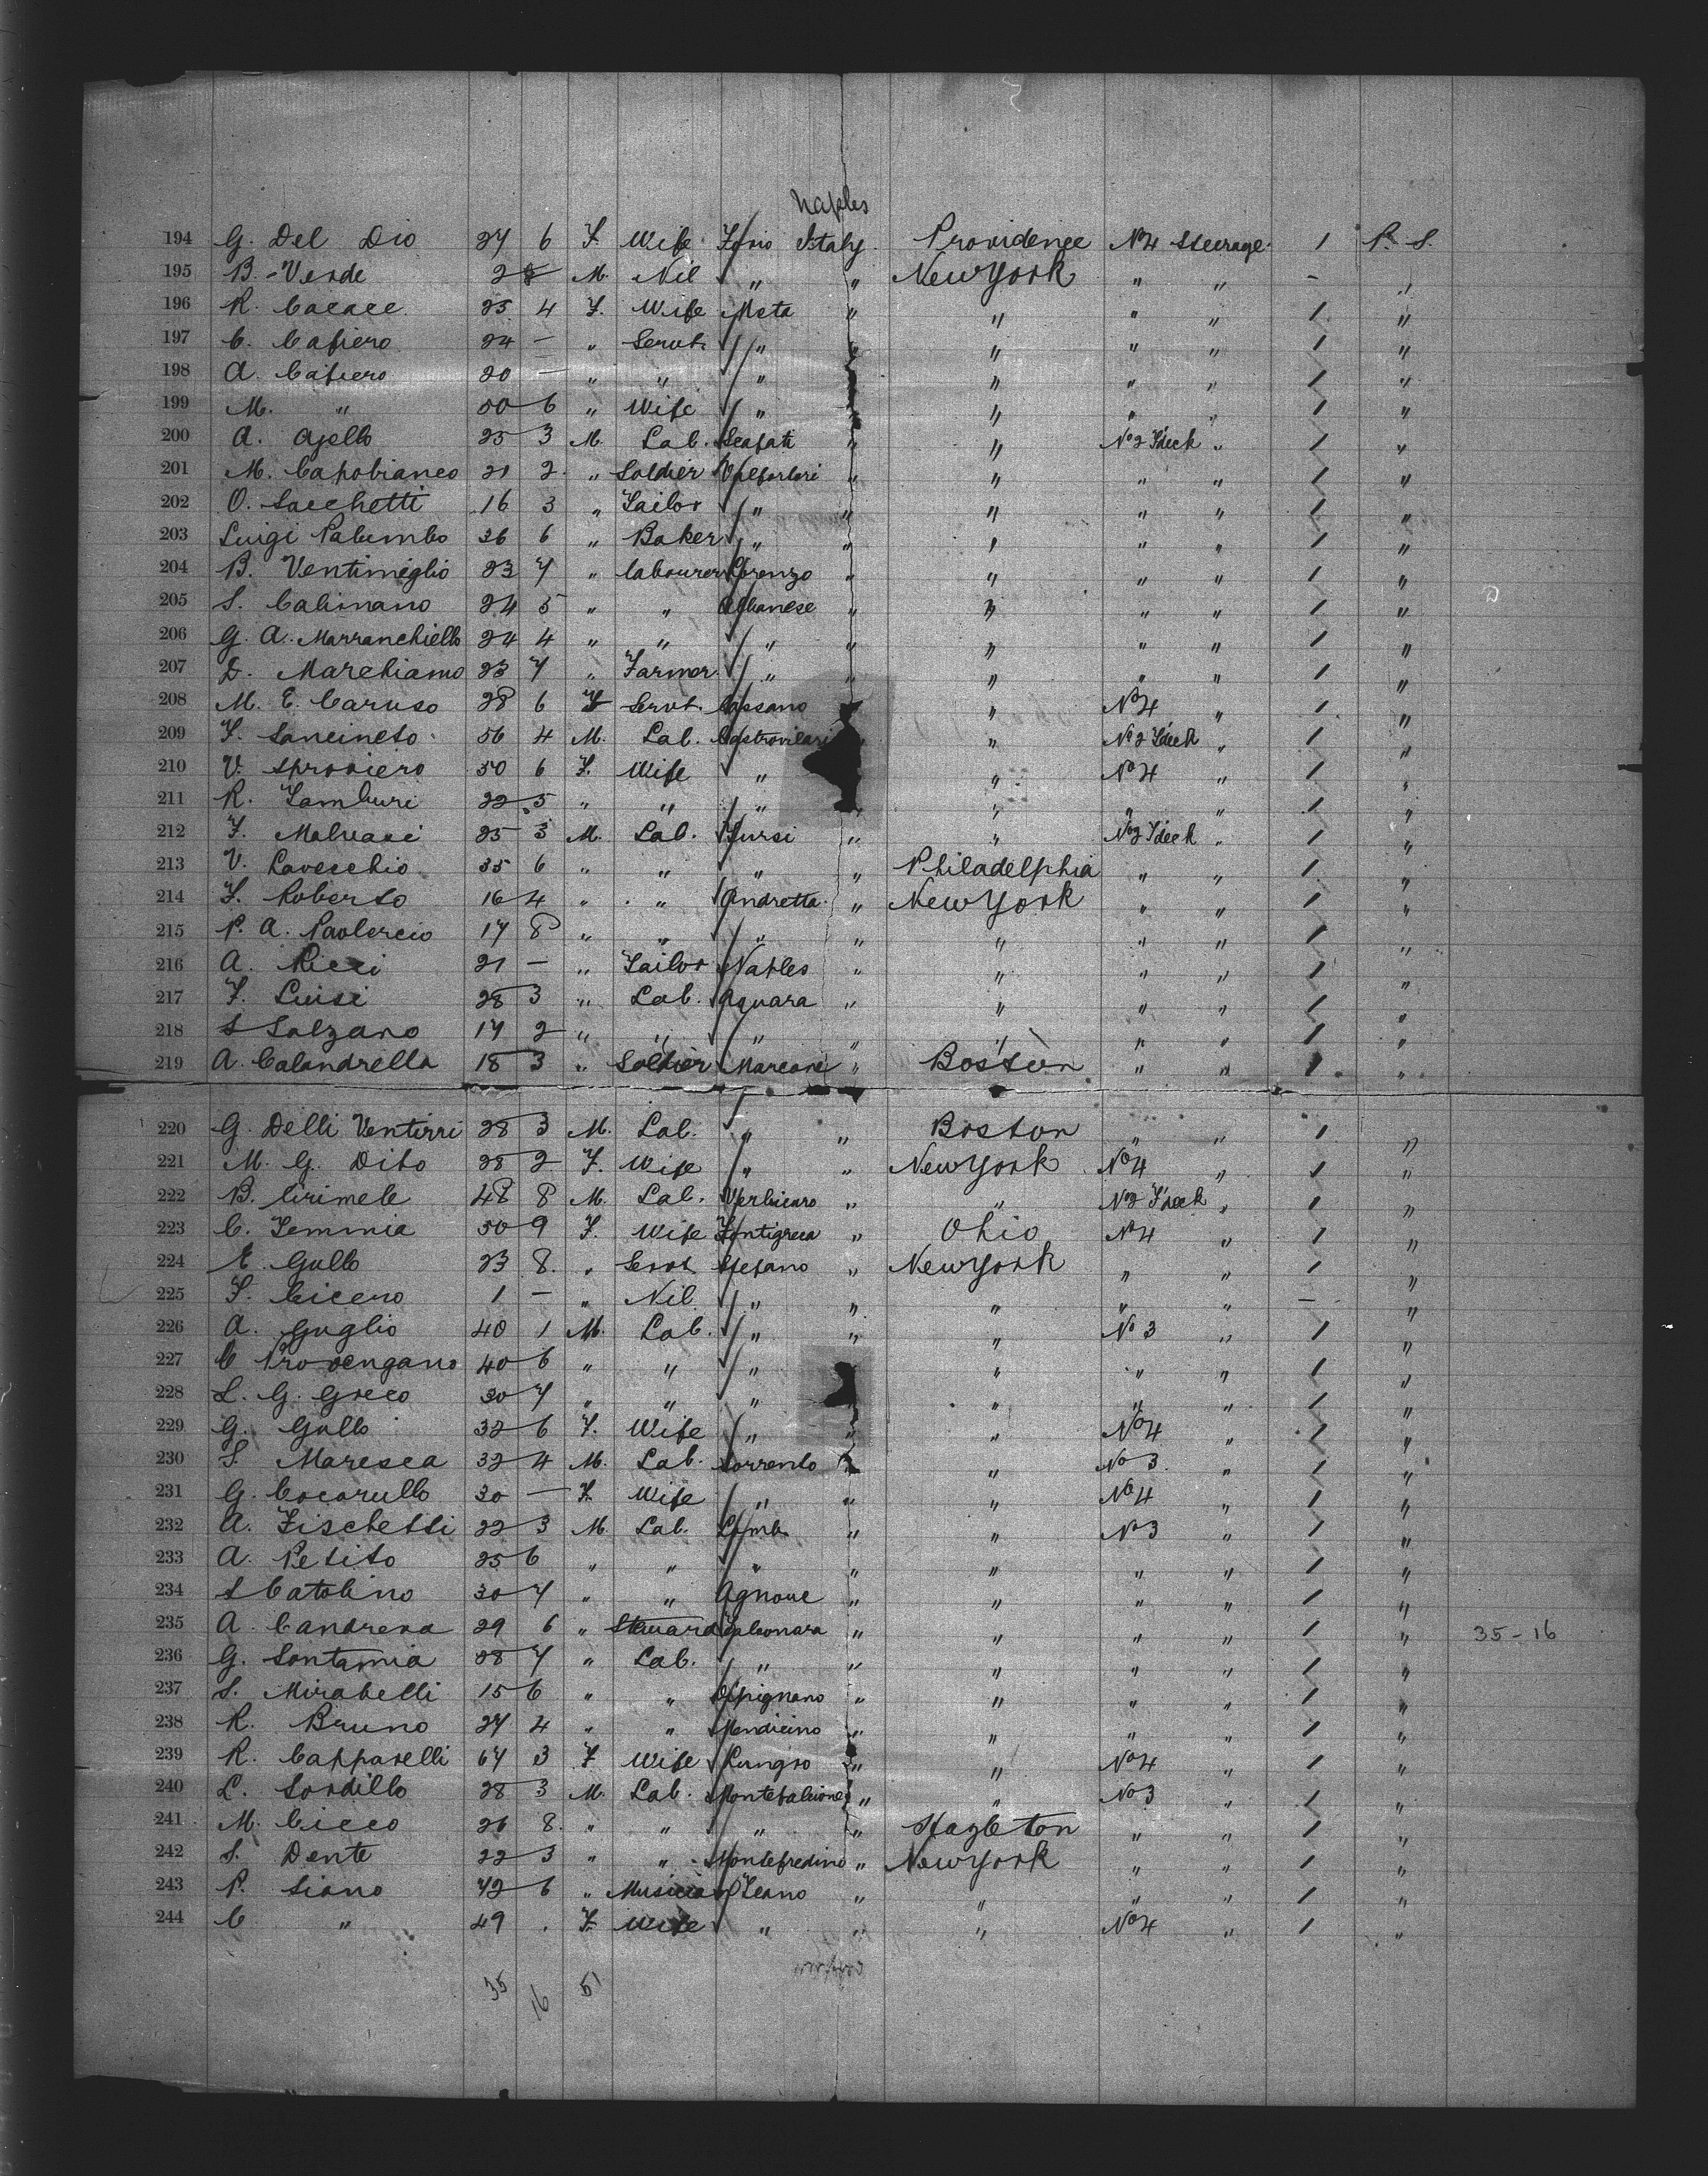 Naples
194 G. Del Dio 27 6 F. Wife Forio Italy Providence No 4 Steerage 1 P. S.
195 B. Verde 2 8 M. Nil " " New York " " - "
196 R. Cacace 25 4 F. Wife Meta " " " " 1 "
197 C. Cafiero 24 - " Servt. " " " " " 1 "
198 A. Cafiero 20 - " " " " " " " 1 "
199 M. " 50 6 " Wife " " " " " 1 "
200 A. Ajello 25 3 M. Lab. Scafati " " No 2 S'deck " 1 "
201 M. Capobianco 21 2 " Soldier " " " " 1 "
202 O. Sacchetti 16 3 " Tailor " " " " " 1 "
203 Luigi Palumbo 36 6 " Baker " " " " " 1 "
204 B. Ventimiglio 23 7 " labourer Lorenzo " " " " 1 "
205 S. Calimano 24 5 " " Albanese " " " " 1 "
206 G. A. Marranchiello 24 4 " " " " " " " 1 "
207 D. Marchiamo 23 7 " Farmer " " " " 1 "
208 M. E. Caruso 28 6 F Servt. Cassano " No 4 " 1 "
209 F. Sancineto 56 4 M. Lab. Castrovilari " " No 2 S'deck " 1 "
210 V. Sproviero 50 6 F. Wife " " No 4 " 1 "
211 R. Tamburi 22 5 " " " " " " " 1 "
212 F. Malvasi 25 3 M. Lab. Tursi " " No 2 S'deck " 1 "
213 V. Lavecchio 35 6 " " " " Philadelphia " " 1 "
214 F. Roberto 16 4 " " Andretta " New York " " 1 "
215 P. A. Paolercio 17 8 " " " " " " " 1 "
216 A. Ricci 21 - " Tailor Naples " " " " 1 "
217 F. Luisi 28 3 " Lab. Aquara " " " " 1 "
218 S Salzano 17 2 " " " " " " " 1 "
219 A. Calandrella 18 3 " Soldier " Boston " " 1 "
220 G. Delli Ventirri 28 3 M. Lab. " " Boston " " 1 "
221 M. G. Dito 28 2 F. Wife " " New York No 4 " 1 "
222 B. Cirimele 48 8 M. Lab. Verbicaro " " No 2 S'deck " 1 "
223 C. Iemmia 50 9 F. Wife Fontigreca " Ohio No 4 " 1 "
224 E. Gullo 23 8 " Servt. Stefano " New York " " 1 "
225 F. Cicero 1 - " Nil " " " " " - "
226 A. Guglio 40 1 M. Lab. " " " No 3 " 1 "
227 C Provengano 40 6 " " " " " " 1 "
228 L. G. Greco 30 7 " " " " " " 1 "
229 G. Gullo 32 6 F. Wife " " " No 4 " 1 "
230 S. Maresca 32 4 M. Lab. Sorrento " " No 3 " 1 "
231 G. Cocorullo 30 - F. Wife " " " No 4 " 1 "
232 A. Fischetti 22 3 M. Lab. " " No 3 " 1 "
233 A. Petito 25 6 " " " " " " " 1 "
234 S Catolino 30 7 " " Agnone " " " " 1 "
235 A. Candreva 29 6 " Steward Falconara " " " " 1 " 35-16
236 G. Santamia 28 7 " Lab. " " " " " 1 "
237 S. Mirabelli 15 6 " " Dipignano " " " " 1 "
238 R. Bruno 27 4 " " Mendicino " " " " 1 "
239 R. Capparelli 67 3 F Wife Lungro " " No 4 " 1 "
240 L. Sordillo 28 3 M. Lab. Montefalcione " " No 3 " 1 "
241 M. Cicco 26 8 " " " " Hazleton " " 1 "
242 S. Dente 22 3 " " Montefredino " New York " " 1 "
243 P. Siano 42 6 " Musician " " " " 1 "
244 C " 49 . F. Wife " " " No 4 " 1 "
35 16 51